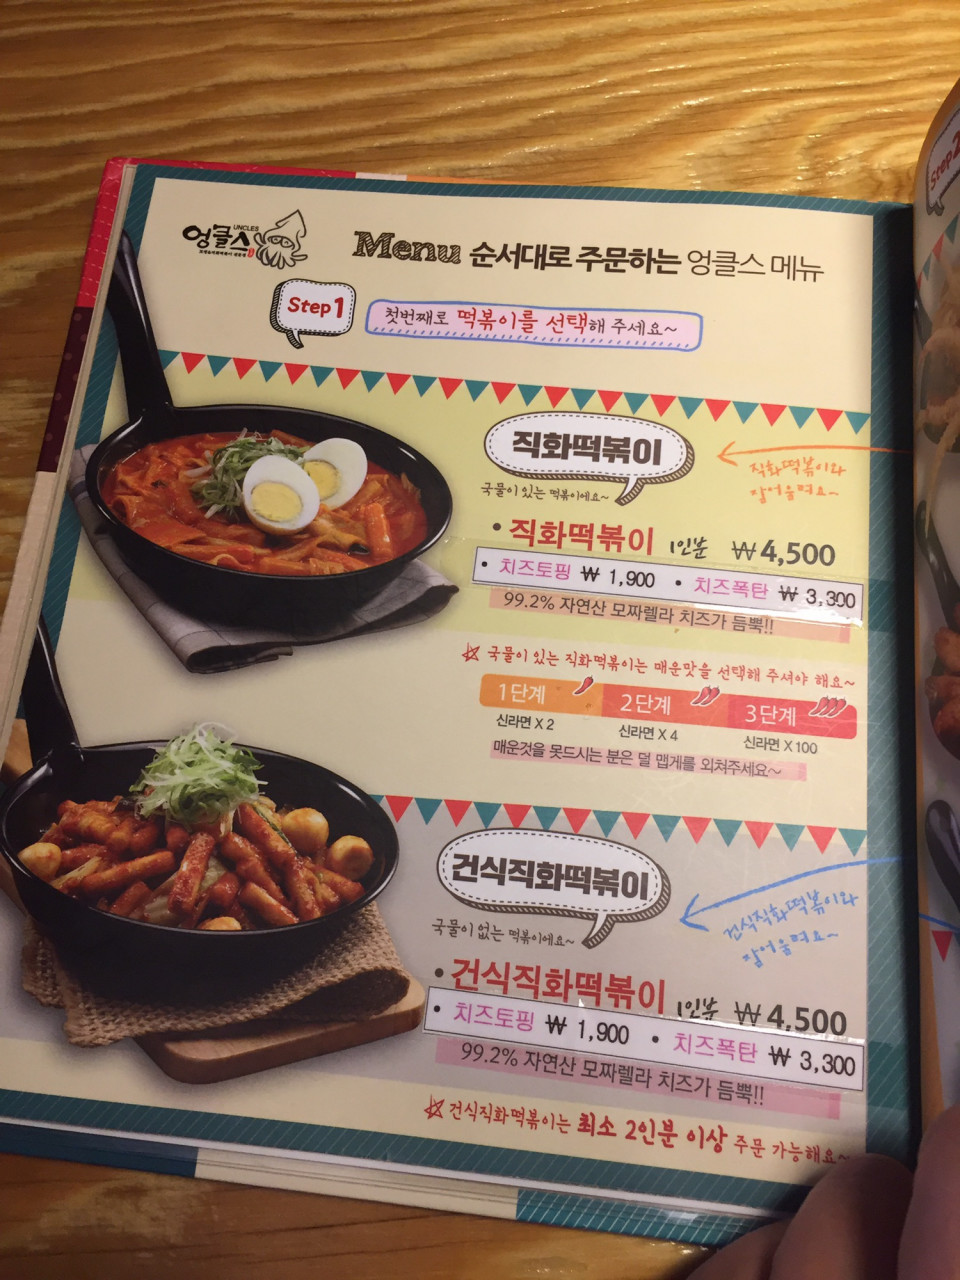 UNCLES
엉클스
Menu 순서대로 주문하는 엉클스 메뉴
Step1
첫번째로 떡볶이를 선택해 주세요~
직화떡볶이
국물이 있는 떡볶이에요~
직화떡볶이와
잘어울려요~
• 직화떡볶이 1인분 ₩4,500
• 치즈토핑 ₩ 1,900 • 치즈폭탄 ₩ 3,300
99.2% 자연산 모짜렐라 치즈가 듬뿍!!
국물이 있는 직화떡볶이는 매운맛을 선택해 주셔야 해요~
1단계 2단계 3단계
신라면 X 2 신라면 X 4 신라면 X 100
매운것을 못드시는 분은 덜 맵게를 외쳐주세요~
건식직화떡볶이
국물이 없는 떡볶이에요~
건식직화떡볶이와
잘어울려요~
• 건식직화떡볶이 1인분 ₩4,500
• 치즈토핑 ₩ 1,900 • 치즈폭탄 ₩ 3,300
99.2% 자연산 모짜렐라 치즈가 듬뿍!!
건식직화떡볶이는 최소 2인분 이상 주문 가능해요~
Step2